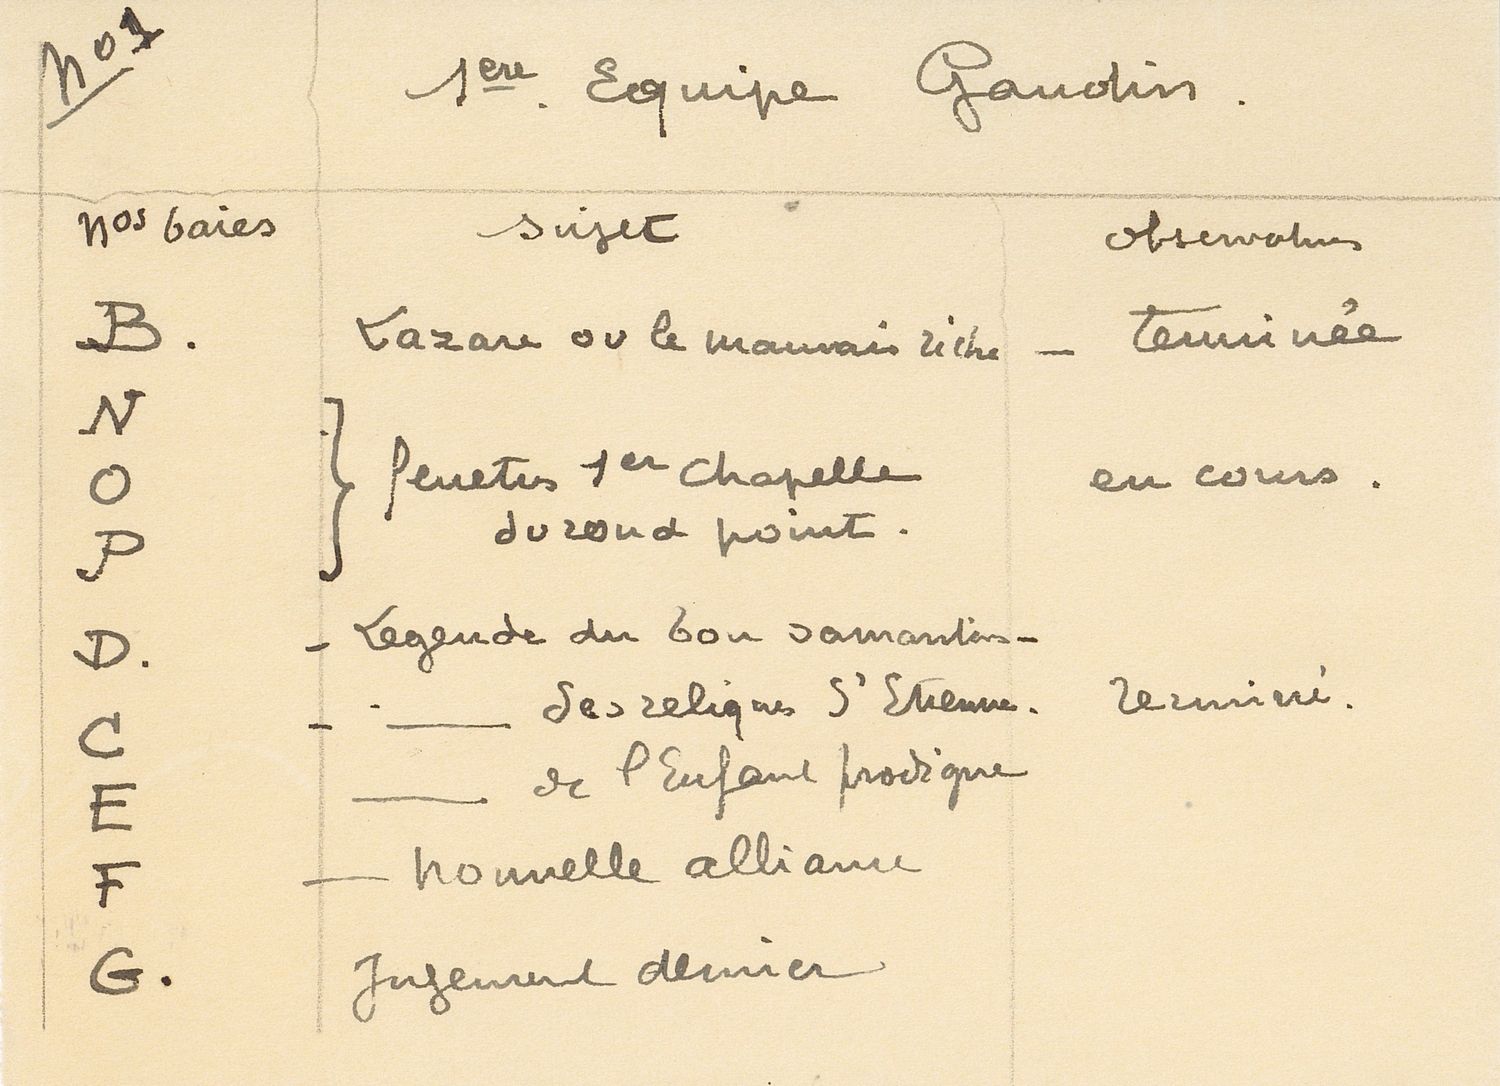 No 1
1ère. Equipe Gaudin.
Nos baies sujet observations
B. Lazare ou le mauvais riche — terminée
N
O fenetres 1er Chapelle en cours.
P du rond point.
D. - Legende du bon samaritain -
C - . ___ des reliques St Etienne. Terminé.
E ___ de l'Enfant prodigue
F — Nouvelle alliance
G. Jugement dernier